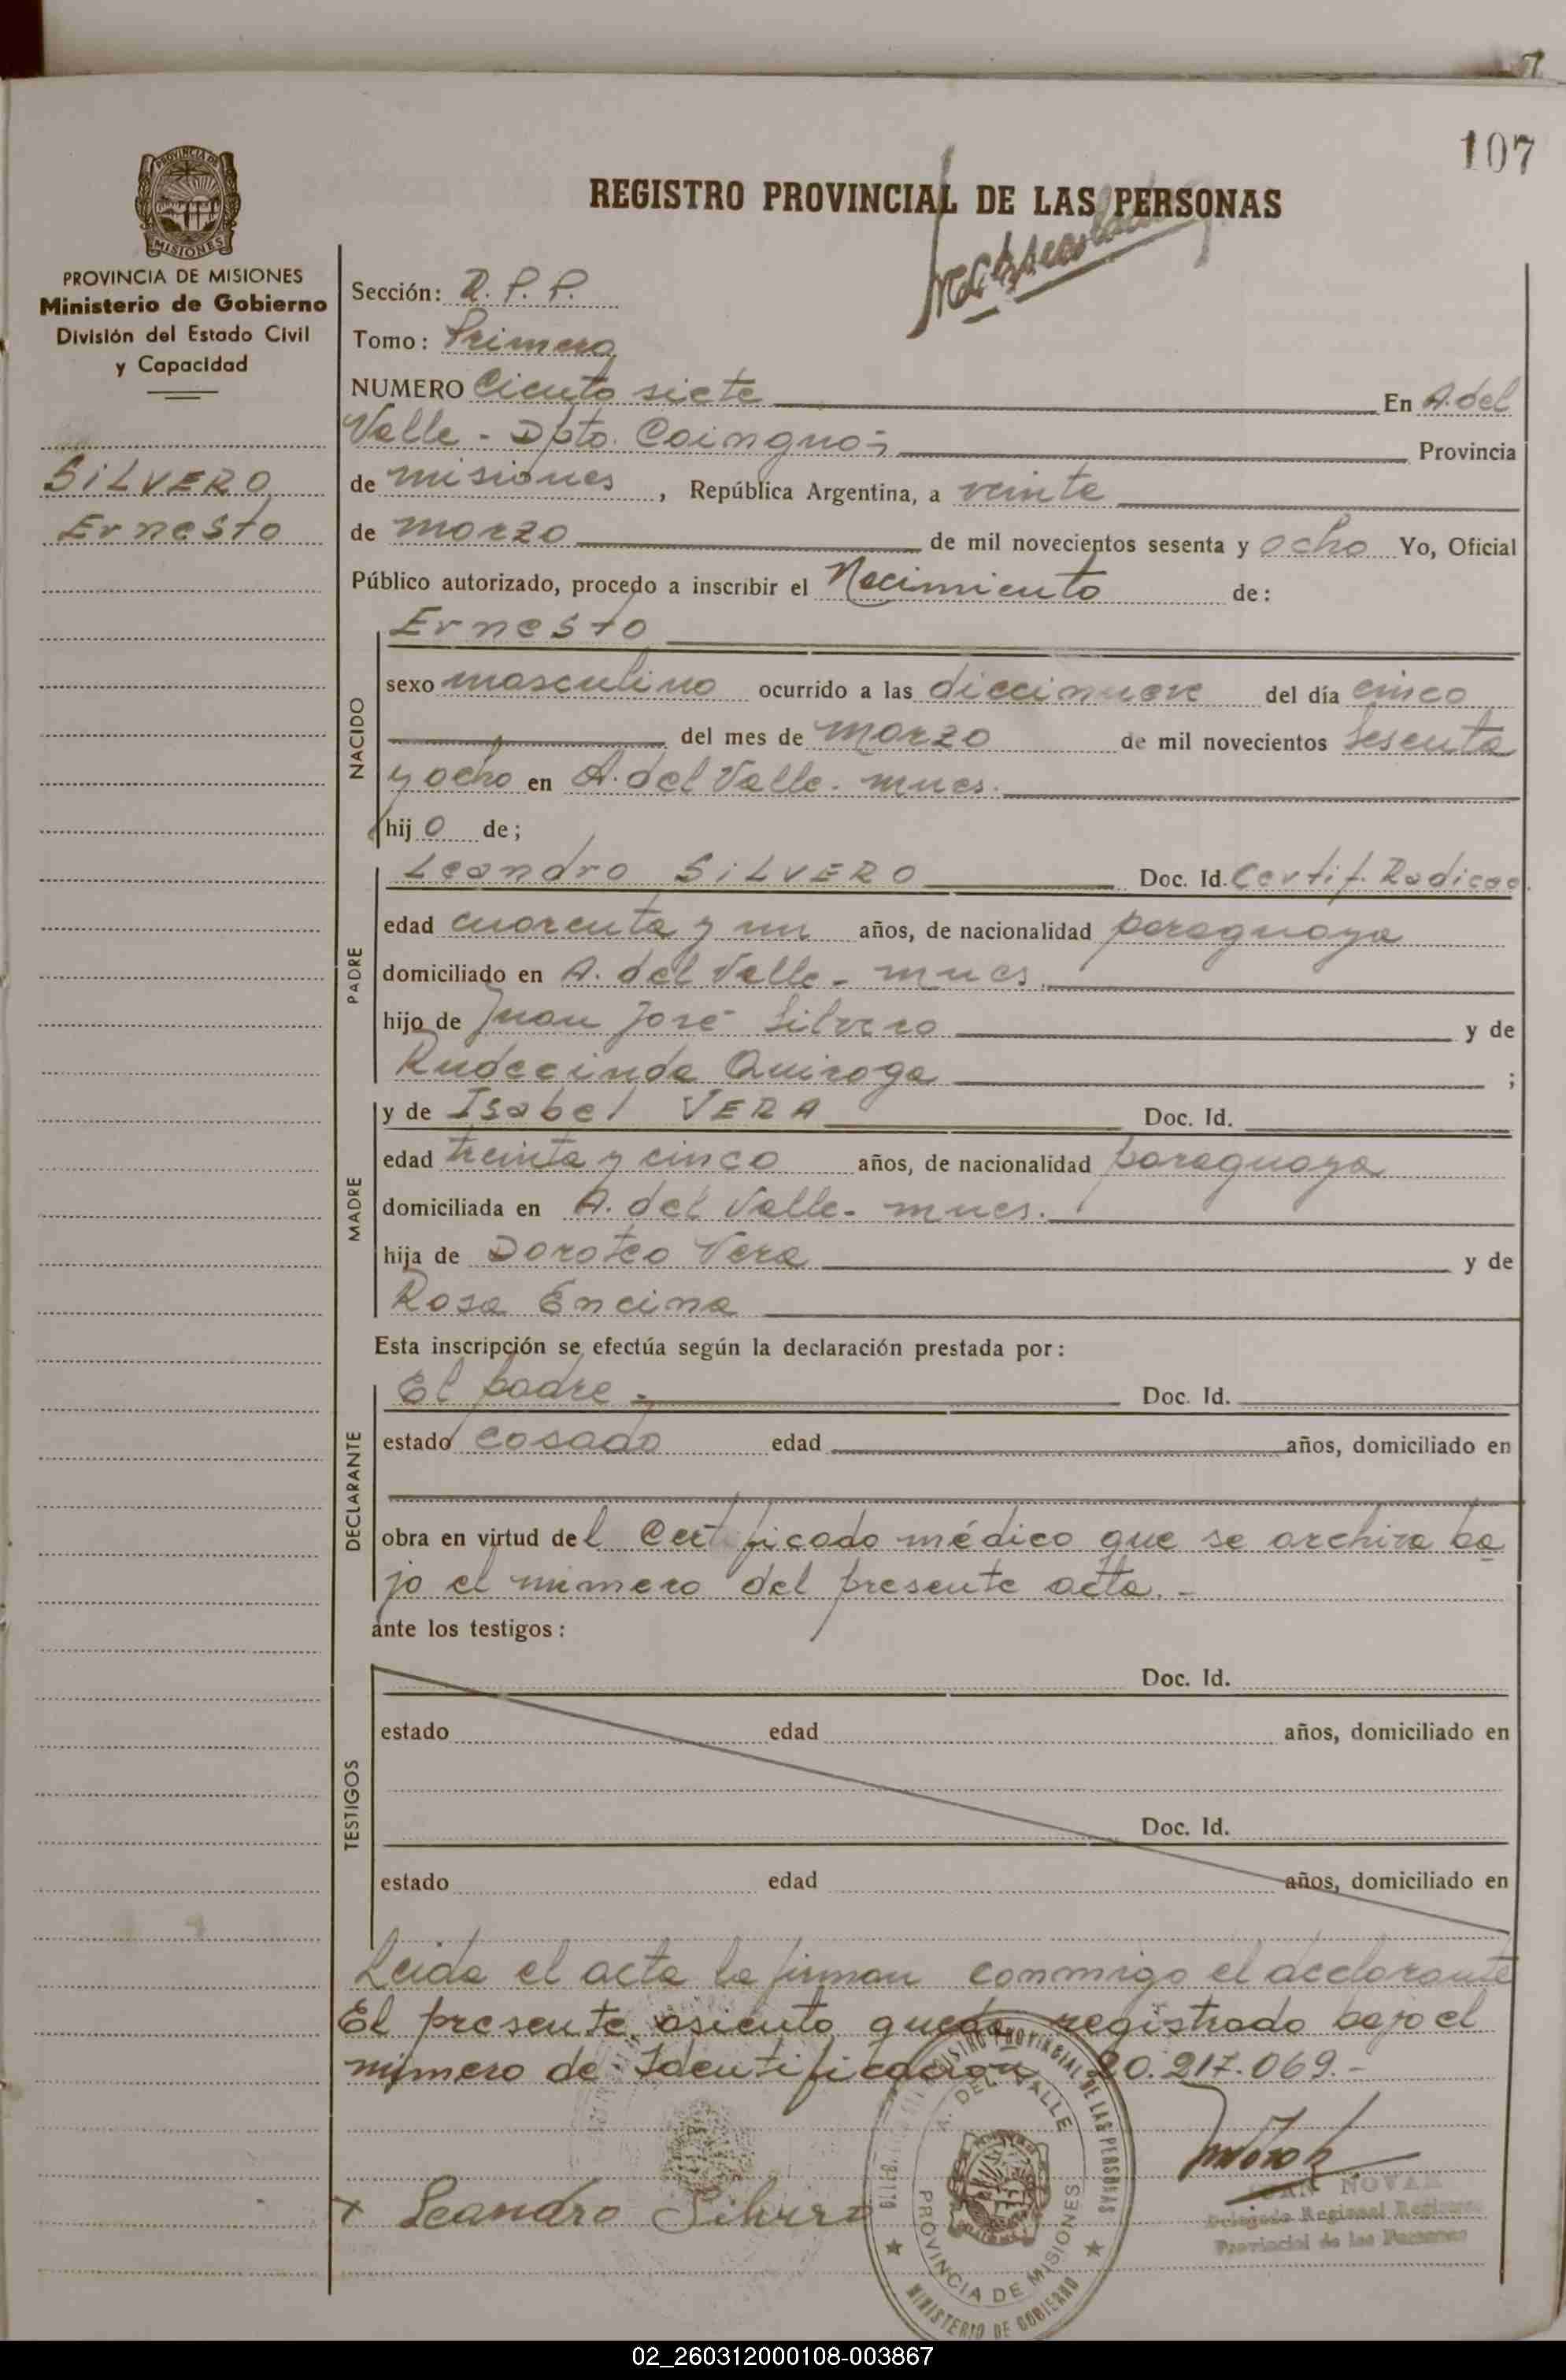 107
REGISTRO PROVINCIAL DE LAS PERSONAS
PROVINCIA DE MISIONES
PROVINCIA DE MISIONES
Ministerio de Gobierno
División del Estado Civil
y Capacidad
SILVERO
Ernesto
Sección: R. P. P.
Tomo: Primero
NUMERO Ciento siete En A. del
Valle - Dpto. Cainguás Provincia
de misiones, República Argentina, a veinte
de marzo de mil novecientos sesenta y ocho Yo, Oficial
Público autorizado, procedo a inscribir el Nacimiento de:
NACIDO
Ernesto
sexo masculino ocurrido a las diecinueve del día cinco
del mes de marzo de mil novecientos sesenta
y ocho en A. del Valle - mnes.
hijo de;
PADRE
Leandro SILVERO Doc. Id. Certif. Radicac.
edad cuarenta y un años, de nacionalidad paraguaya
domiciliado en A. del Valle - mnes.
hijo de Juan José Silvero y de
Rudecinda Quiroga ;
MADRE
y de Isabel VERA Doc. Id.
edad treinta y cinco años, de nacionalidad paraguaya
domiciliada en A. del Valle - mnes.
hija de Doroteo Vera y de
Rosa Encina
Esta inscripción se efectúa según la declaración prestada por:
DECLARANTE
El padre - Doc. Id.
estado casado edad años, domiciliado en
obra en virtud del Certificado médico que se archiva ba
jo el número del presente acta. -
ante los testigos:
TESTIGOS
Doc. Id.
estado edad años, domiciliado en
Doc. Id.
estado edad años, domiciliado en
Leida el acta la firman conmigo el declarante
El presente asiento queda registrado bajo el
número de Identificación 20.217.069.-
x Leandro Silvero
REGISTRO PROVINCIAL DE LAS PERSONAS
A. DEL VALLE
PROVINCIA DE MISIONES
MINISTERIO DE GOBIERNO
JUAN NOVAK
Delegado Regional Registro
Provincial de las Personas
02_260312000108-003867